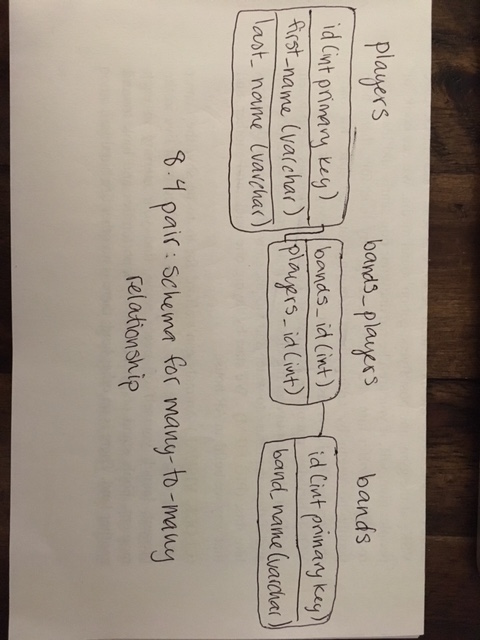 players
id (int primary key)
first_name (varchar)
last_name (varchar)
bands_players
bands_id (int)
players_id (int)
bands
id (int primary key)
band_name (varchar)
8.4 pair: schema for many-to-many
relationship